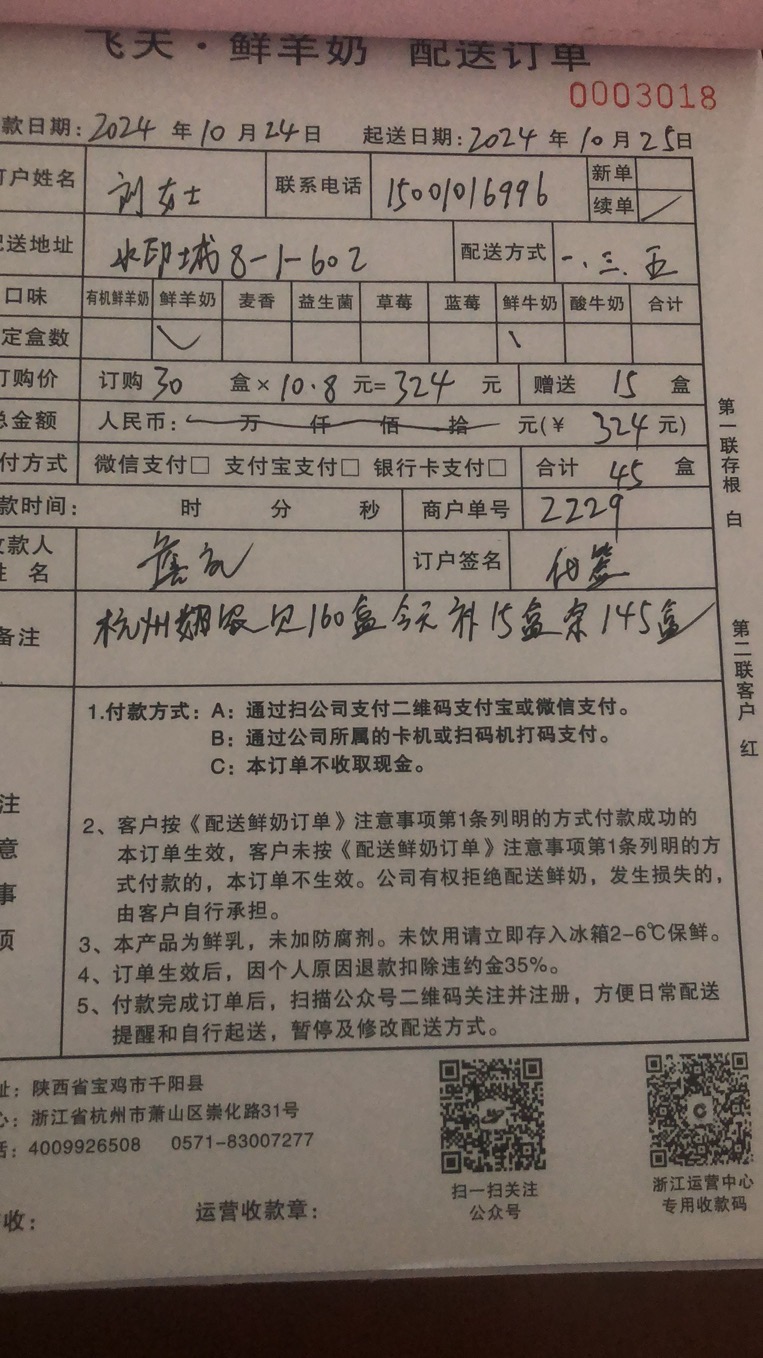 飞天·鲜羊奶 配送订单
0003018
款日期：2024年10月24日 起送日期：2024年10月25日
订户姓名 刘女士 联系电话 15001016996 新单
续单 ✓
配送地址 水印城8-1-602 配送方式 一.三.五
口味 有机鲜羊奶 鲜羊奶 麦香 益生菌 草莓 蓝莓 鲜牛奶 酸牛奶 合计
定盒数
订购价 订购30盒×10.8元=324元 赠送15盒
总金额 人民币： 万 仟 佰 拾 元(¥324元)
付方式 微信支付□ 支付宝支付□ 银行卡支付□ 合计45盒
款时间： 时 分 秒 商户单号 2229
收款人
姓名 订户签名 代签
备注 杭州 160盒今天补15盒 145盒
1.付款方式：A：通过扫公司支付二维码支付宝或微信支付。
B：通过公司所属的卡机或扫码机打码支付。
C：本订单不收取现金。
注意事项
2、客户按《配送鲜奶订单》注意事项第1条列明的方式付款成功的
本订单生效，客户未按《配送鲜奶订单》注意事项第1条列明的方
式付款的，本订单不生效。公司有权拒绝配送鲜奶，发生损失的，
由客户自行承担。
3、本产品为鲜乳，未加防腐剂。未饮用请立即存入冰箱2-6℃保鲜。
4、订单生效后，因个人原因退款扣除违约金35%。
5、付款完成订单后，扫描公众号二维码关注并注册，方便日常配送
提醒和自行起送，暂停及修改配送方式。
第一联存根 白
第二联客户 红
址：陕西省宝鸡市千阳县
心：浙江省杭州市萧山区崇化路31号
话：4009926508 0571-83007277
扫一扫关注
公众号
浙江运营中心
专用收款码
收： 运营收款章：